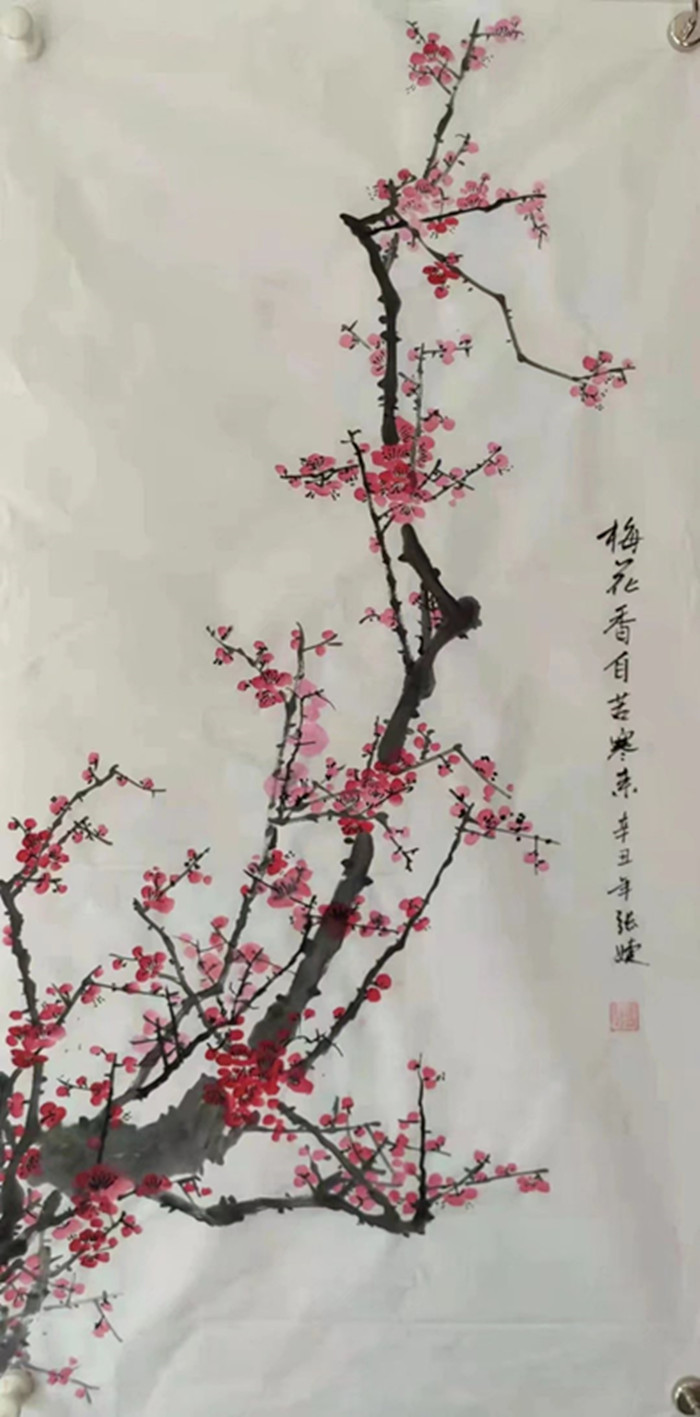 梅花香自苦寒来 辛丑年张婕